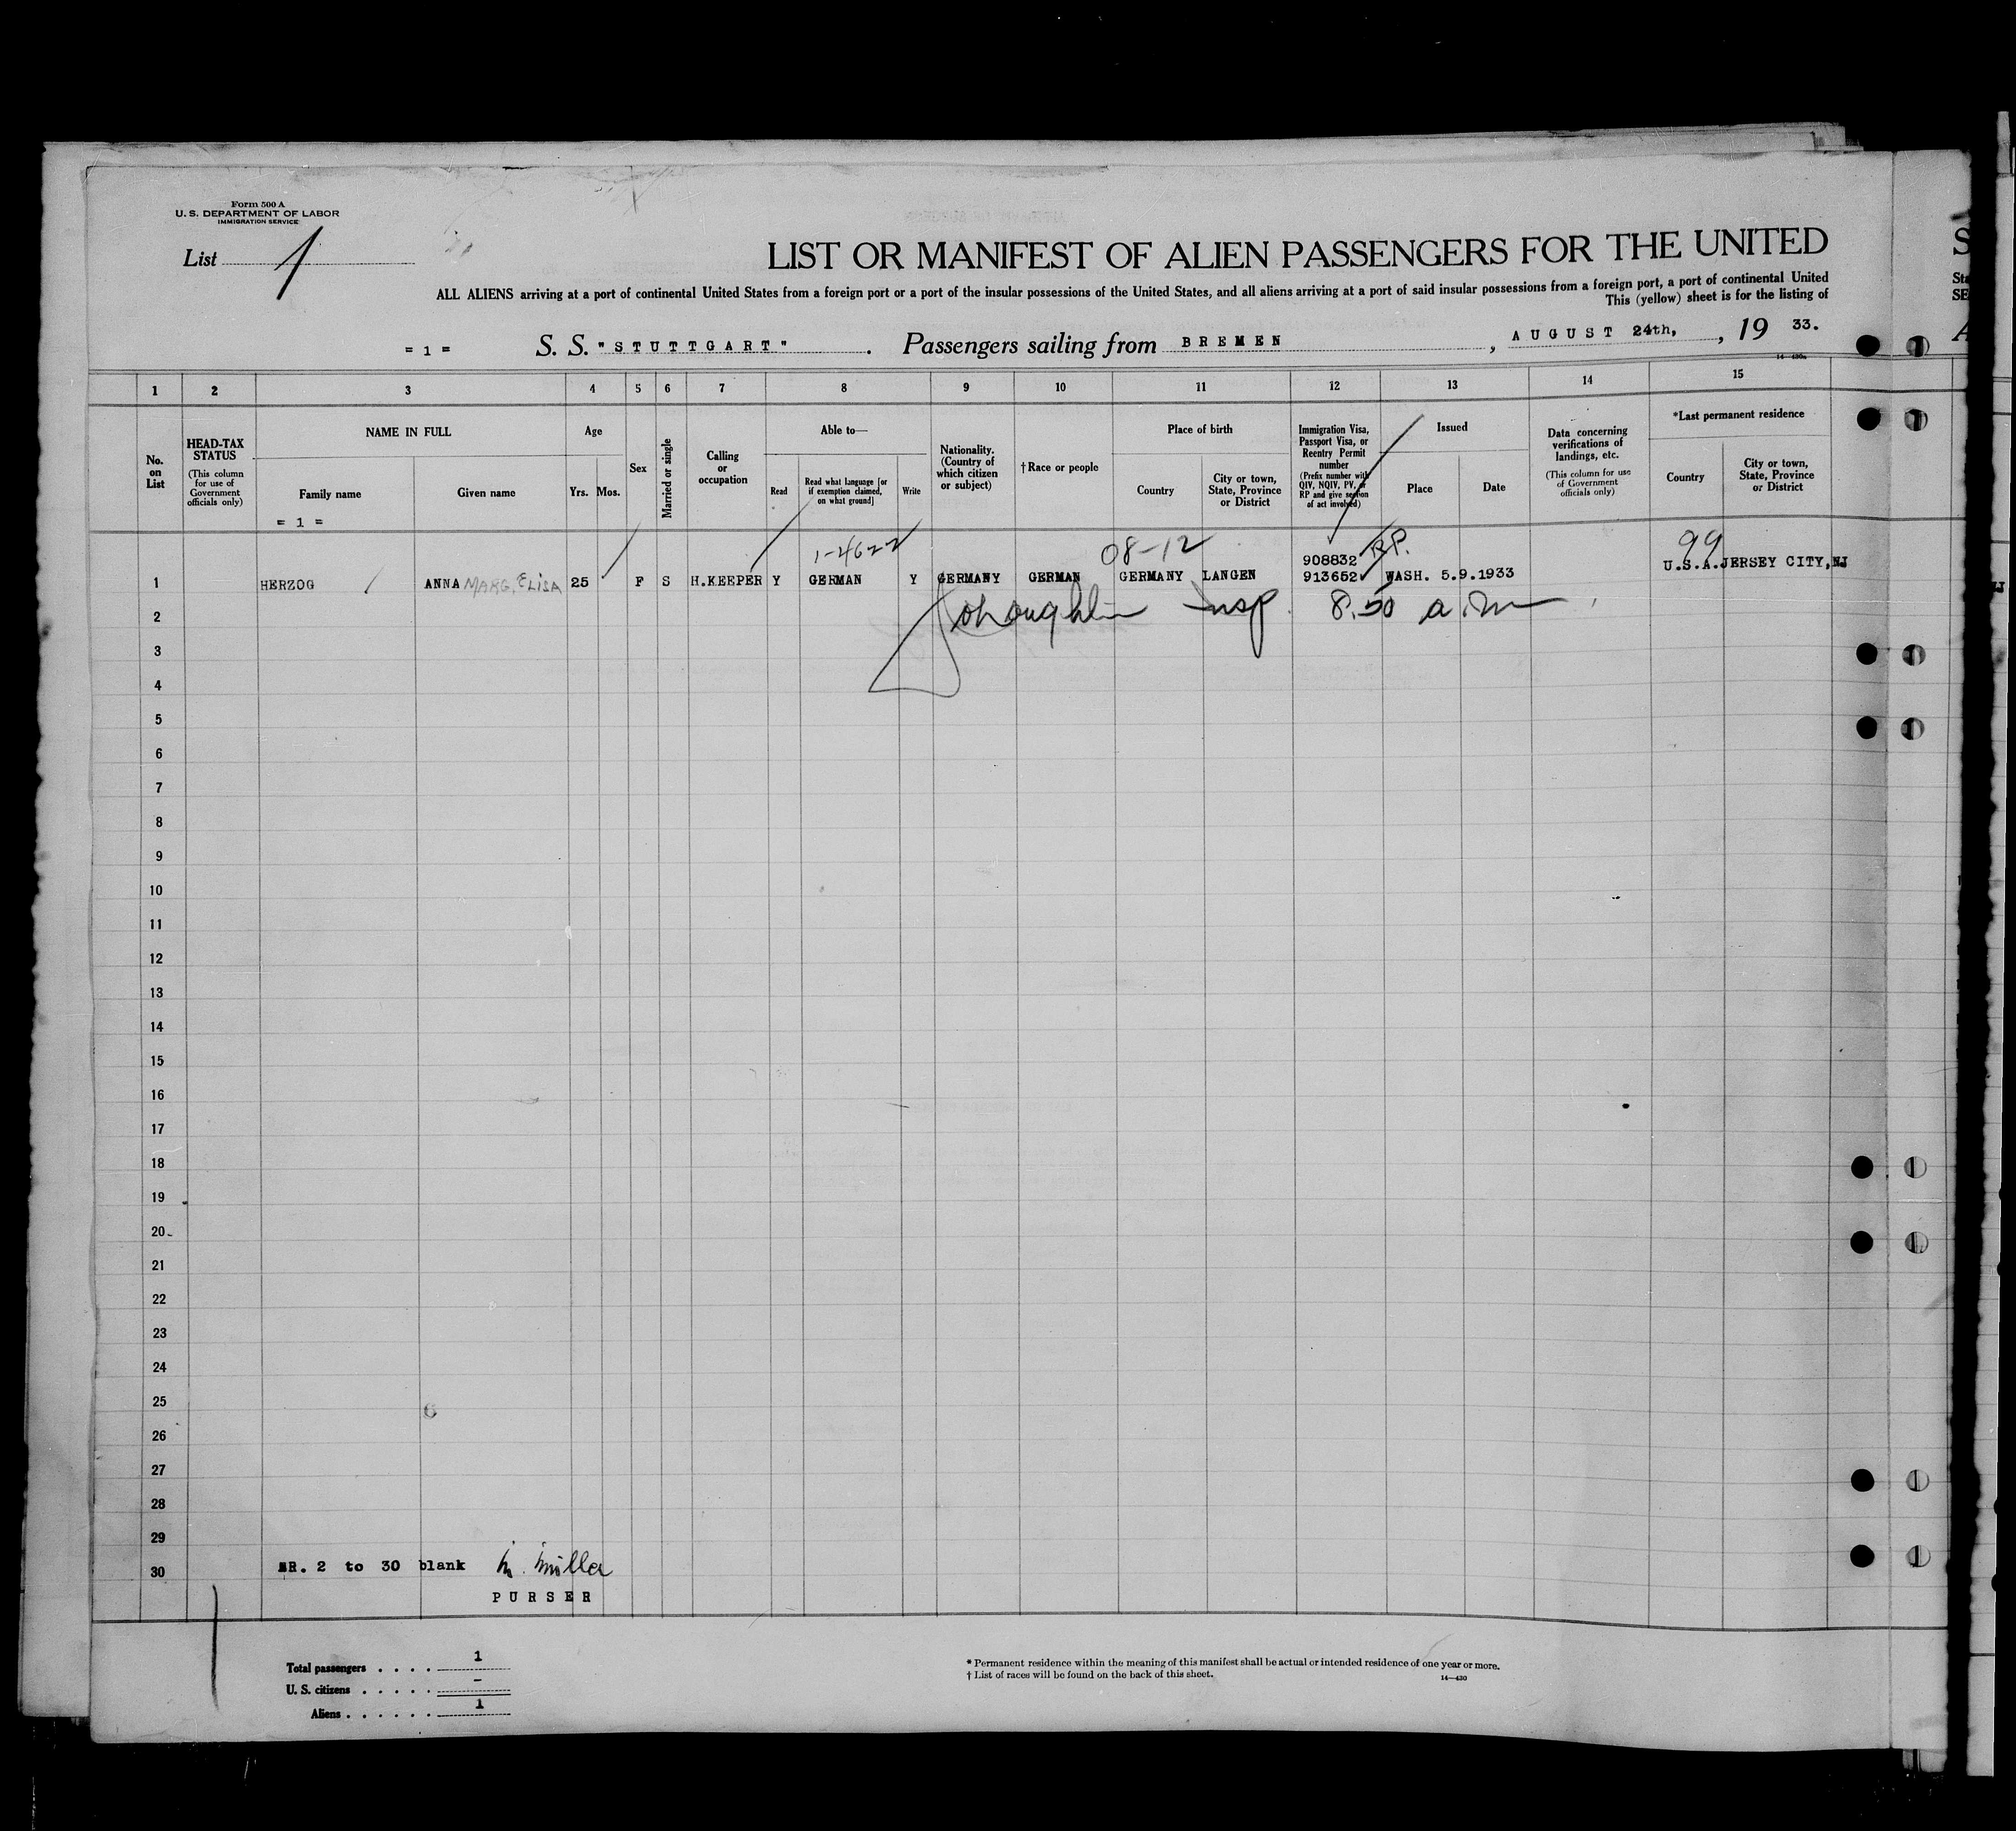 Form 500 A
U. S. DEPARTMENT OF LABOR
IMMIGRATION SERVICE
List 1
LIST OR MANIFEST OF ALIEN PASSENGERS FOR THE UNITED
ALL ALIENS arriving at a port of continental United States from a foreign port or a port of the insular possessions of the United States, and all aliens arriving at a port of said insular possessions from a foreign port, a port of continental United
This (yellow) sheet is for the listing of
= 1 = S. S. "STUTTGART" . Passengers sailing from BREMEN , AUGUST 24th, , 19 33.
14—430a
1 2 3 4 5 6 7 8 9 10 11 12 13 14 15
No. on List
HEAD-TAX STATUS
(This column for use of Government officials only)
NAME IN FULL
Family name
Given name
= 1 =
Age
Yrs. Mos.
Sex
Married or single
Calling or occupation
Able to—
Read
Read what language [or if exemption claimed, on what ground]
Write
Nationality. (Country of which citizen or subject)
† Race or people
Place of birth
Country
City or town, State, Province or District
Immigration Visa, Passport Visa, or Reentry Permit number
(Prefix number with QIV, NQIV, PV, or RP and give section of act involved)
Issued
Place
Date
Data concerning verifications of landings, etc.
(This column for use of Government officials only)
*Last permanent residence
Country
City or town, State, Province or District
1-4622 08-12 908832 RP. 99
1 HERZOG ANNA MARG. ELISA 25 F S H.KEEPER Y GERMAN Y GERMANY GERMAN GERMANY LANGEN 913652 WASH. 5.9.1933 U.S.A. JERSEY CITY,NJ
2 Insp. 8.50 a.m
3
4
5
6
7
8
9
10
11
12
13
14
15
16
17
18
19
20
21
22
23
24
25
26
27
28
29
30 NR. 2 to 30 blank
PURSER
Total passengers . . . . 1
U. S. citizens . . . . . -
Aliens . . . . . . 1
* Permanent residence within the meaning of this manifest shall be actual or intended residence of one year or more.
† List of races will be found on the back of this sheet.
14—430